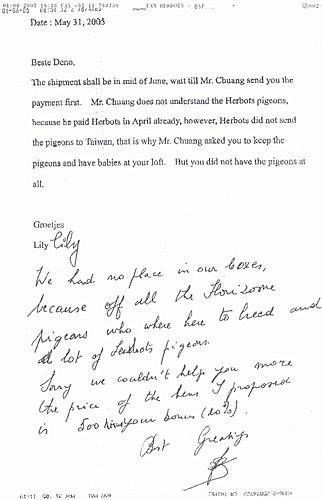 Date : May 31, 2005
Beste Deno,
The shipment shall be in mid of June, wait till Mr. Chuang send you the
payment first. Mr. Chuang does not understand the Herbots pigeons,
because he paid Herbots in April already, however, Herbots did not send
the pigeons to Taiwan, that is why Mr. Chuang asked you to keep the
pigeons and have babies at your loft. But you did not have the pigeons at
all.
Groetjes
Lily Lily
We had no place in our boxes,
because off all the
pigeons who where here to breed and
a lot of pigeons.
Sorry we couldn't help you more
the price of the hens I proposed
is 500 bonus (10%).
Best Greatings